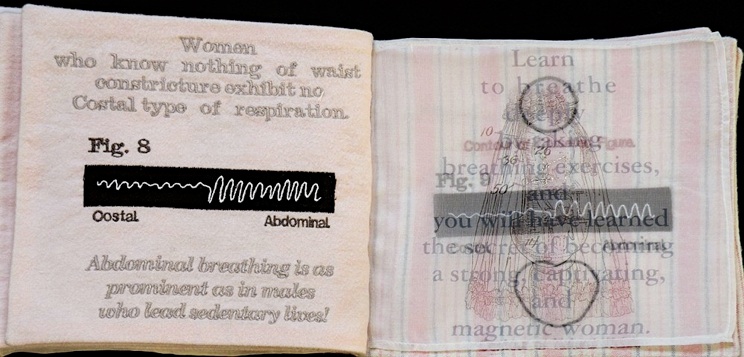 Women
who know nothing of waist
constricture exhibit no
Costal type of respiration.
Fig. 8
Costal Abdominal
Abdominal breathing is as
prominent as in males
who lead sedentary lives!
Learn
to breathe
deeply
10
Contour of
Figura
26
36
breathing exercises,
Fig. 9
50
and
you will have learned
Abdominal
the secret of becoming
a strong, captivating,
and
magnetic woman.